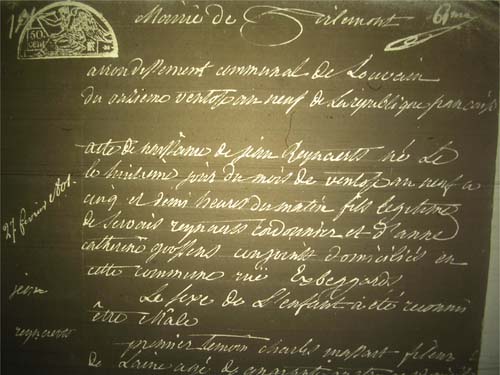 Mairie de Tirlemont
50 cent
arrondissement communal de Louvain
du onzieme ventos an neuf de La republique francaise
acte de naissance de jean Reynaerts né Le
le huitieme jour du mois de ventos an neuf a
cinq et demi heures du matin fils legitime
de servais reynaerts cordonnier et d'anne
catherine goossens conjoints domiciliés en
cette commune ruë
27 fevrier 1801.
Le sexe de L'enfant a été reconnu
être Mâle
jean
reynaerts
premier temoin charles massart fileur
de Laine agé de quarante